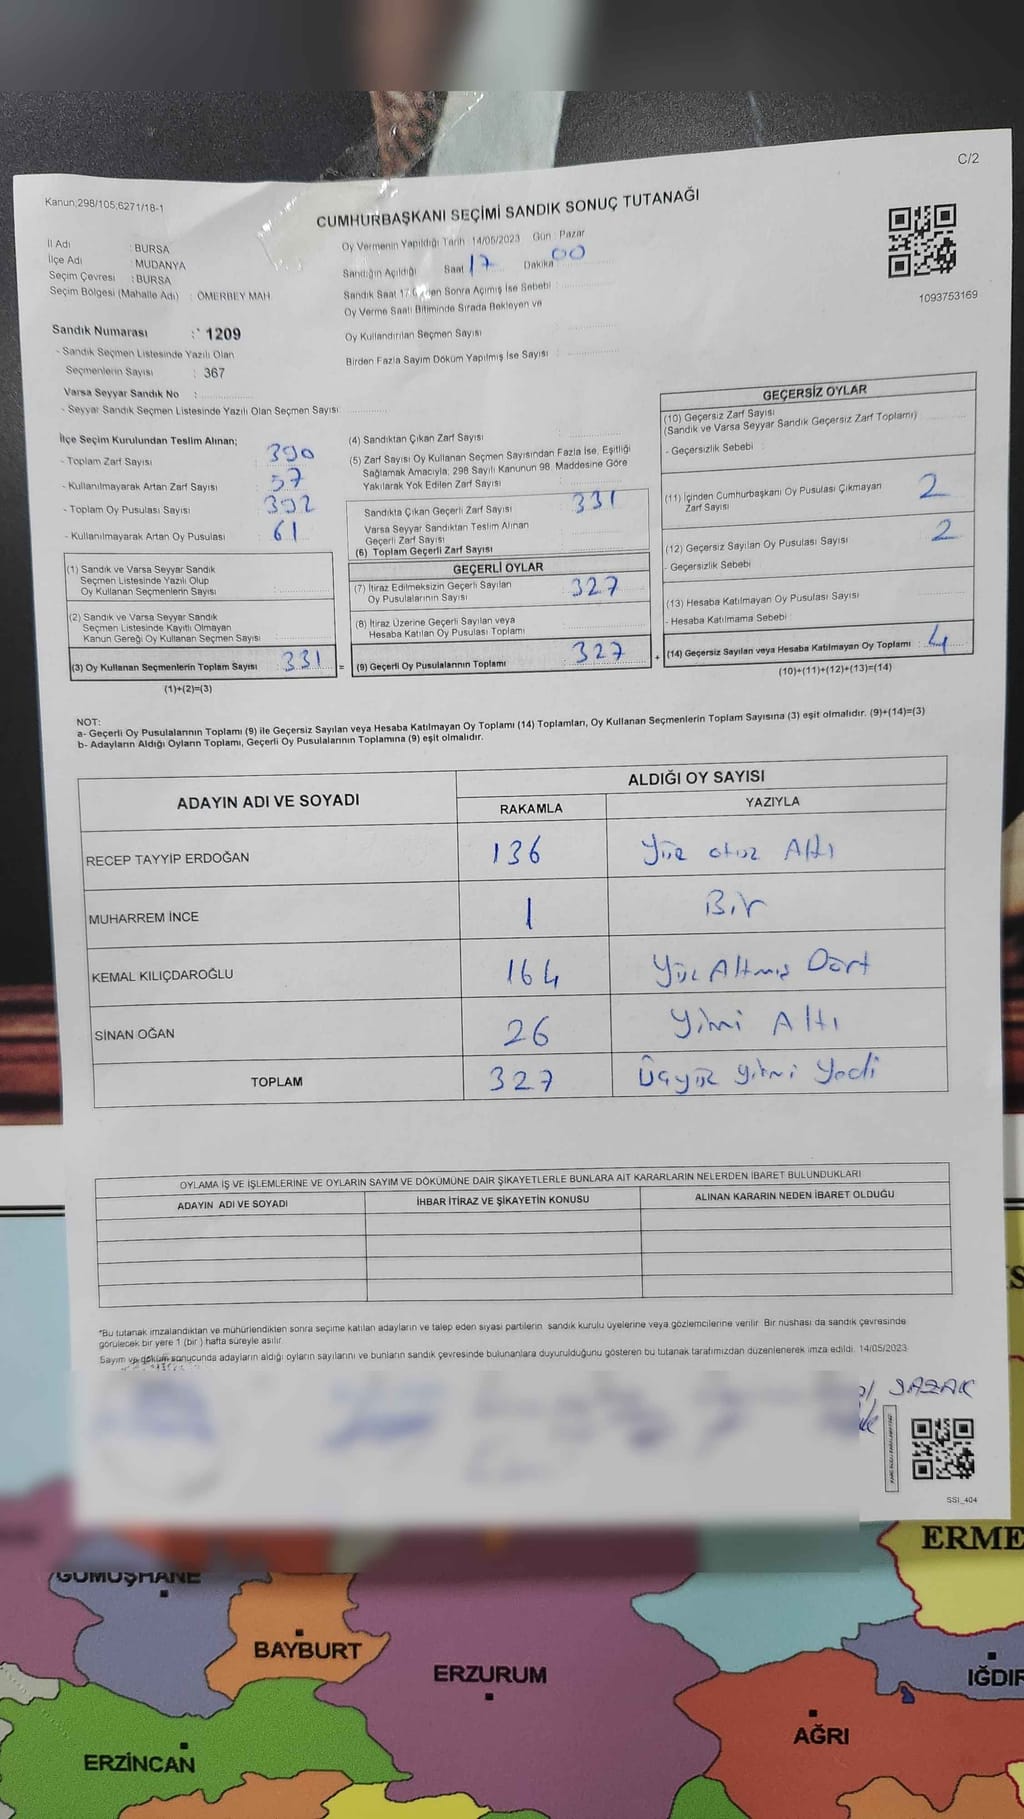 C/2
Kanun;298/105;6271/18-1
CUMHURBAŞKANI SEÇİMİ SANDIK SONUÇ TUTANAĞI
İl Adı : BURSA
İlçe Adı : MUDANYA
Seçim Çevresi : BURSA
Seçim Bölgesi (Mahalle Adı) : ÖMERBEY MAH.
Oy Vermenin Yapıldığı Tarih 14/05/2023 Gün : Pazar
Sandığın Açıldığı Saat 17 Dakika 00
Sandık Saat 17:00'den Sonra Açımış İse Sebebi :
Oy Verme Saati Bitiminde Sırada Bekleyen ve
Oy Kullandırılan Seçmen Sayısı
Birden Fazla Sayım Döküm Yapılmış İse Sayısı :
1093753169
Sandık Numarası : 1209
- Sandık Seçmen Listesinde Yazılı Olan
Seçmenlerin Sayısı : 367
Varsa Seyyar Sandık No :
- Seyyar Sandık Seçmen Listesinde Yazılı Olan Seçmen Sayısı
İlçe Seçim Kurulundan Teslim Alınan;
- Toplam Zarf Sayısı : 390
- Kullanılmayarak Artan Zarf Sayısı : 57
- Toplam Oy Pusulası Sayısı : 392
- Kullanılmayarak Artan Oy Pusulası : 61
(1) Sandık ve Varsa Seyyar Sandık
Seçmen Listesinde Yazılı Olup
Oy Kullanan Seçmenlerin Sayısı :
(2) Sandık ve Varsa Seyyar Sandık
Seçmen Listesinde Kayıtlı Olmayan
Kanun Gereği Oy Kullanan Seçmen Sayısı :
(3) Oy Kullanan Seçmenlerin Toplam Sayısı : 331 =
(1)+(2)=(3)
(4) Sandıktan Çıkan Zarf Sayısı
(5) Zarf Sayısı Oy Kullanan Seçmen Sayısından Fazla İse, Eşitliği
Sağlamak Amacıyla, 298 Sayılı Kanunun 98. Maddesine Göre
Yakılarak Yok Edilen Zarf Sayısı
Sandıkta Çıkan Geçerli Zarf Sayısı : 331
Varsa Seyyar Sandıktan Teslim Alınan
Geçerli Zarf Sayısı
(6) Toplam Geçerli Zarf Sayısı
GEÇERLİ OYLAR
(7) İtiraz Edilmeksizin Geçerli Sayılan
Oy Pusulalarının Sayısı : 327
(8) İtiraz Üzerine Geçerli Sayılan veya
Hesaba Katılan Oy Pusulası Toplamı
(9) Geçerli Oy Pusulalarının Toplamı : 327 +
GEÇERSİZ OYLAR
(10) Geçersiz Zarf Sayısı
(Sandık ve Varsa Seyyar Sandık Geçersiz Zarf Toplamı)
- Geçersizlik Sebebi :
(11) İçinden Cumhurbaşkanı Oy Pusulası Çıkmayan
Zarf Sayısı 2
(12) Geçersiz Sayılan Oy Pusulası Sayısı 2
- Geçersizlik Sebebi
(13) Hesaba Katılmayan Oy Pusulası Sayısı
- Hesaba Katılmama Sebebi :
(14) Geçersiz Sayılan veya Hesaba Katılmayan Oy Toplamı : 4
(10)+(11)+(12)+(13)=(14)
NOT:
a- Geçerli Oy Pusulalarının Toplamı (9) ile Geçersiz Sayılan veya Hesaba Katılmayan Oy Toplamı (14) Toplamları, Oy Kullanan Seçmenlerin Toplam Sayısına (3) eşit olmalıdır. (9)+(14)=(3)
b- Adayların Aldığı Oyların Toplamı, Geçerli Oy Pusulalarının Toplamına (9) eşit olmalıdır.
ADAYIN ADI VE SOYADI
ALDIĞI OY SAYISI
RAKAMLA YAZIYLA
RECEP TAYYİP ERDOĞAN 136 Yüz otuz Altı
MUHARREM İNCE 1 Bir
KEMAL KILIÇDAROĞLU 164 Yüz Altmış Dört
SİNAN OĞAN 26 Yimi Altı
TOPLAM 327 Üçyüz yirmi Yedi
OYLAMA İŞ VE İŞLEMLERİNE VE OYLARIN SAYIM VE DÖKÜMÜNE DAİR ŞİKAYETLERLE BUNLARA AİT KARARLARIN NELERDEN İBARET BULUNDUKLARI
ADAYIN ADI VE SOYADI İHBAR İTİRAZ VE ŞİKAYETİN KONUSU ALINAN KARARIN NEDEN İBARET OLDUĞU
*Bu tutanak imzalandıktan ve mühürlendikten sonra seçime katılan adayların ve talep eden siyasi partilerin sandık kurulu üyelerine veya gözlemcilerine verilir. Bir nushası da sandık çevresinde
görülecek bir yere 1 (bir) hafta süreyle asılır.
Sayım ve döküm sonucunda adayların aldığı oyların sayılarını ve bunların sandık çevresinde bulunanlara duyurulduğunu gösteren bu tutanak tarafımızdan düzenlenerek imza edildi. 14/05/2023
SAZAK
SSI_404
ERME
GÜMÜŞHANE
BAYBURT
ERZURUM
IĞDIR
AĞRI
ERZİNCAN